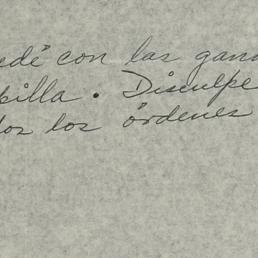 edé con las gana
pilla. Disculpe
dos los órdenes